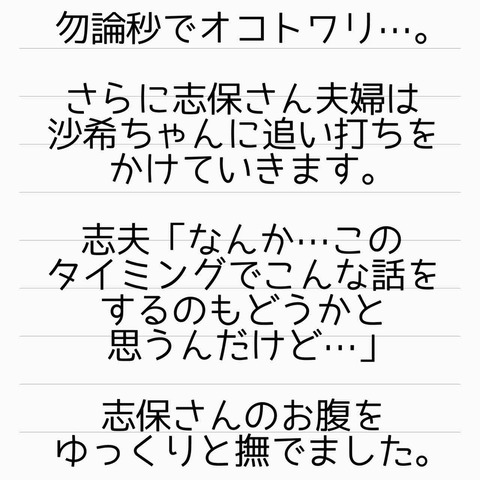 勿論秒でオコトワリ…。
さらに志保さん夫婦は
沙希ちゃんに追い打ちを
かけていきます。
志夫「なんか…この
タイミングでこんな話を
するのもどうかと
思うんだけど…」
志保さんのお腹を
ゆっくりと撫でました。